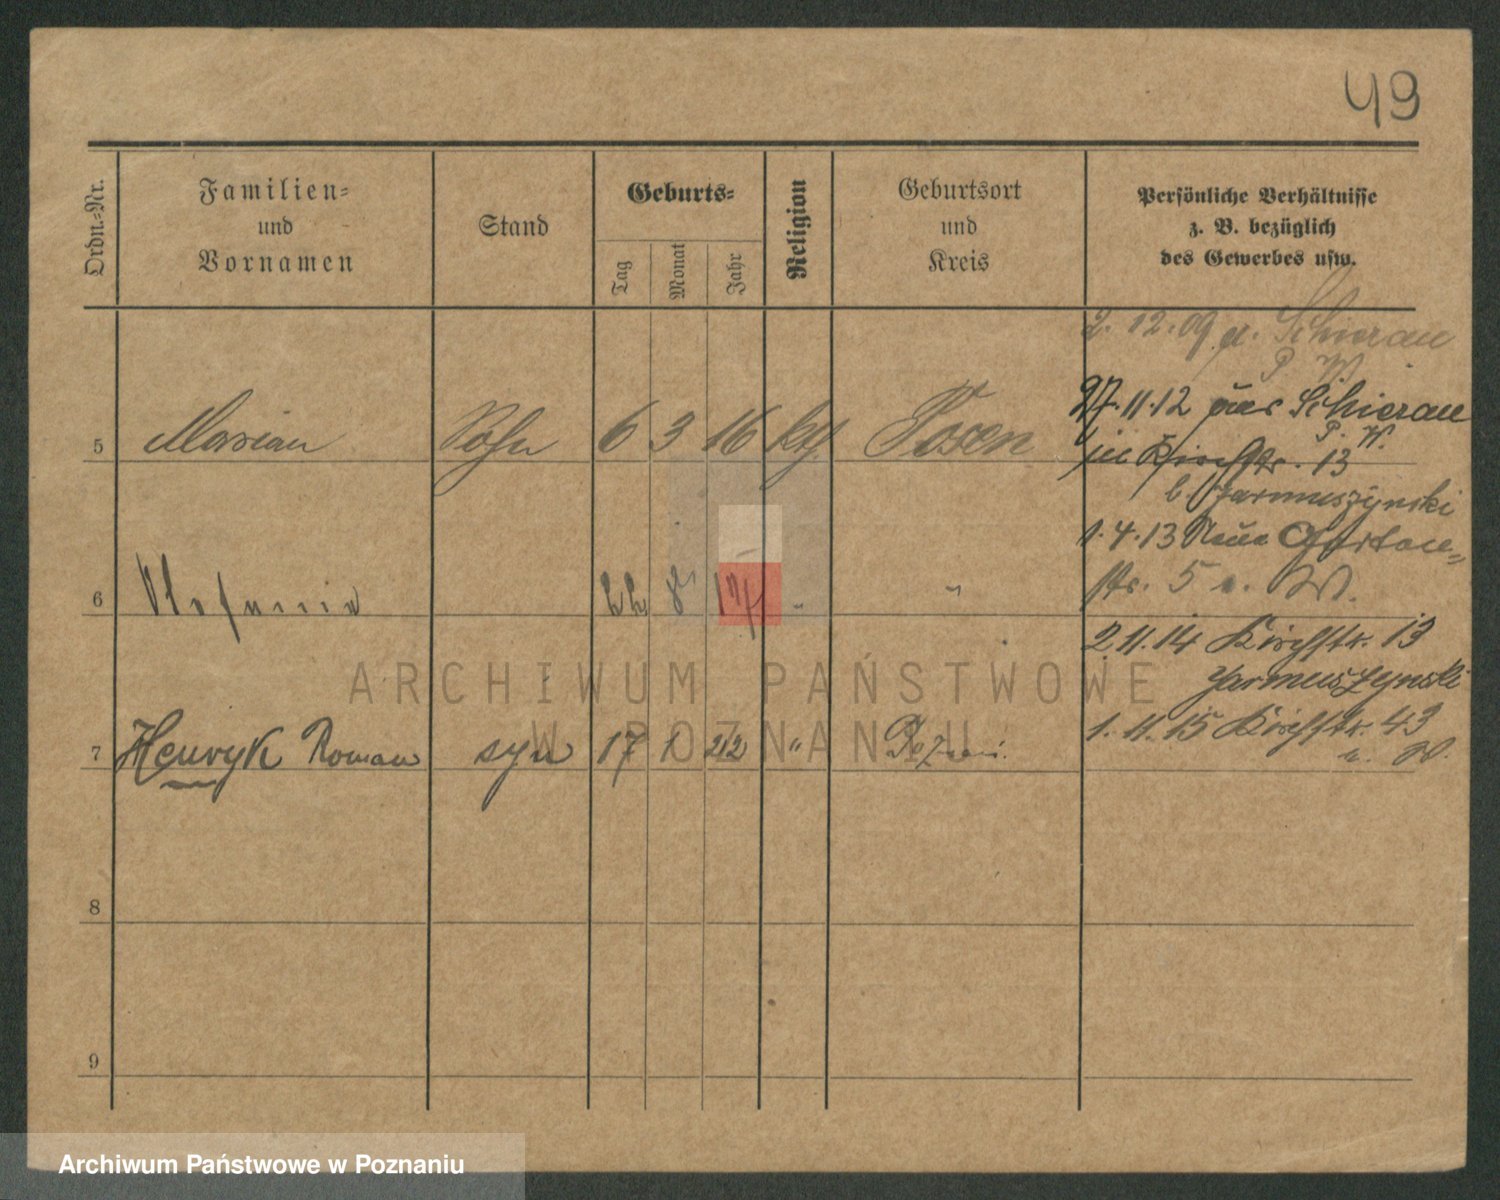 49
Ordn.-Nr.
Familien-
und
Vornamen
Stand
Geburts-
Tag
Monat
Jahr
Religion
Geburtsort
und
Kreis
Persönliche Verhältnisse
z. B. bezüglich
des Gewerbes usw.
2.12.09 a. Schieran
P. W.
27.11.12 aus Schieran
P. W.
5 Marian Sohn 6 3 16 kth. Posen
in Kirchstr. 13
b. Jarmuszynski
1.4.13 Neue Garten-
str. 5 b. W.
6 Stefania 22 8 17 " "
2.11.14 Kirchstr. 13
Jarmuszynski
1.11.15 Kirchstr. 43
b. W.
7 Henryk Roman syn 17 1 22 " Poznań.
8
9
ARCHIWUM PAŃSTWOWE
W POZNANIU
Archiwum Państwowe w Poznaniu